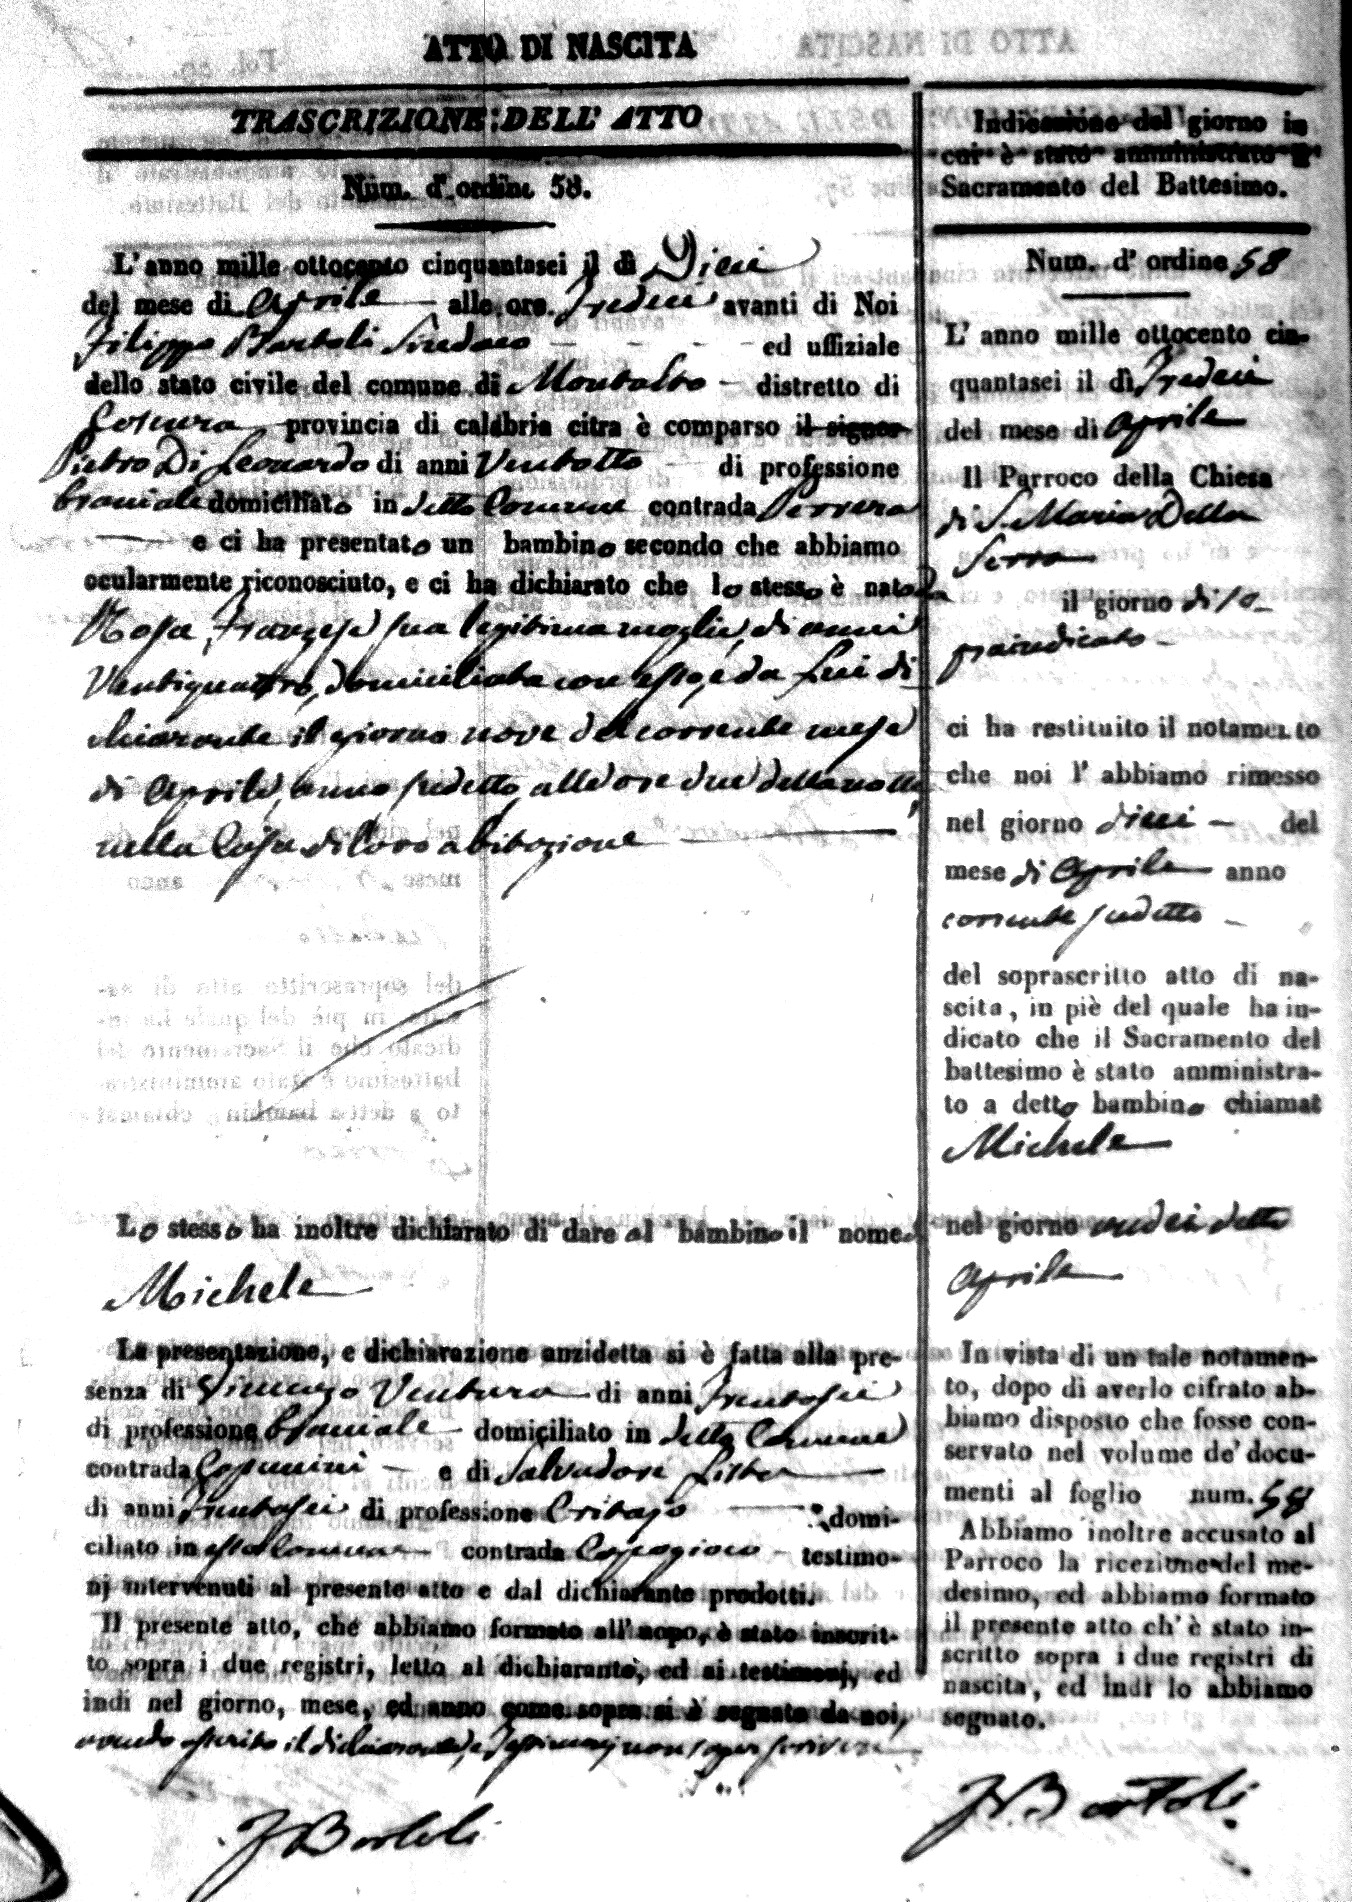 ATTO DI NASCITA
TRASCRIZIONE DELL' ATTO
Num. d'ordine 58.
L'anno mille ottocento cinquantasei il dì Dieci
del mese di Aprile alle ore Tredeci avanti di Noi
Filippo Bartoli Sindaco ed uffiziale
dello stato civile del comune di Montalto distretto di
Cosenza provincia di calabria citra è comparso il signor
Pietro Di Leonardo di anni Ventotto di professione
braciale domiciliato in detto Comune contrada
e ci ha presentato un bambino secondo che abbiamo
ocularmente riconosciuto, e ci ha dichiarato che lo stesso è nato da
Rosa Franzese sua legitima moglie, di anni
Ventiquattro, domiciliata con esso, e da Lui di
chiarante il giorno nove del corrente mese
di Aprile, anno sudetto, alle ore due della notte,
nella Casa di loro abitazione
Lo stesso ha inoltre dichiarato di dare al bambino il nome di
Michele
La presentazione, e dichiarazione anzidetta si è fatta alla pre-
senza di Vincenzo Ventura di anni Trentasei
di professione braciale domiciliato in detto Comune
contrada e di Salvadore
di anni Trentasei di professione domi-
ciliato in esso Comune contrada testimo-
nj intervenuti al presente atto e dal dichiarante prodotti.
Il presente atto, che abbiamo formato all'uopo, è stato inscrit-
to sopra i due registri, letto al dichiarante, ed ai testimonj, ed
indi nel giorno, mese, ed anno come sopra si è segnato da noi,
avendo asserito il dichiarante, e Testimonj non saper scrivere
F Bartoli
Indicazione del giorno in
cui è stato amministrato il
Sacramento del Battesimo.
Num. d'ordine 58
L'anno mille ottocento cin-
quantasei il dì Tredeci
del mese di Aprile
Il Parroco della Chiesa
di S. Maria Della
Serra
il giorno di so-
praindicato
ci ha restituito il notamento
che noi l'abbiamo rimesso
nel giorno dieci del
mese di Aprile anno
corrente sudetto
del soprascritto atto di na-
scita, in piè del quale ha in-
dicato che il Sacramento del
battesimo è stato amministra-
to a detto bambino chiamat
Michele
nel giorno undeci detto
Aprile
In vista di un tale notamen-
to, dopo di averlo cifrato ab-
biamo disposto che fosse con-
servato nel volume de' docu-
menti al foglio num. 58
Abbiamo inoltre accusato al
Parroco la ricezione del me-
desimo, ed abbiamo formato
il presente atto ch'è stato in-
scritto sopra i due registri di
nascita, ed indi lo abbiamo
segnato.
F Bartoli